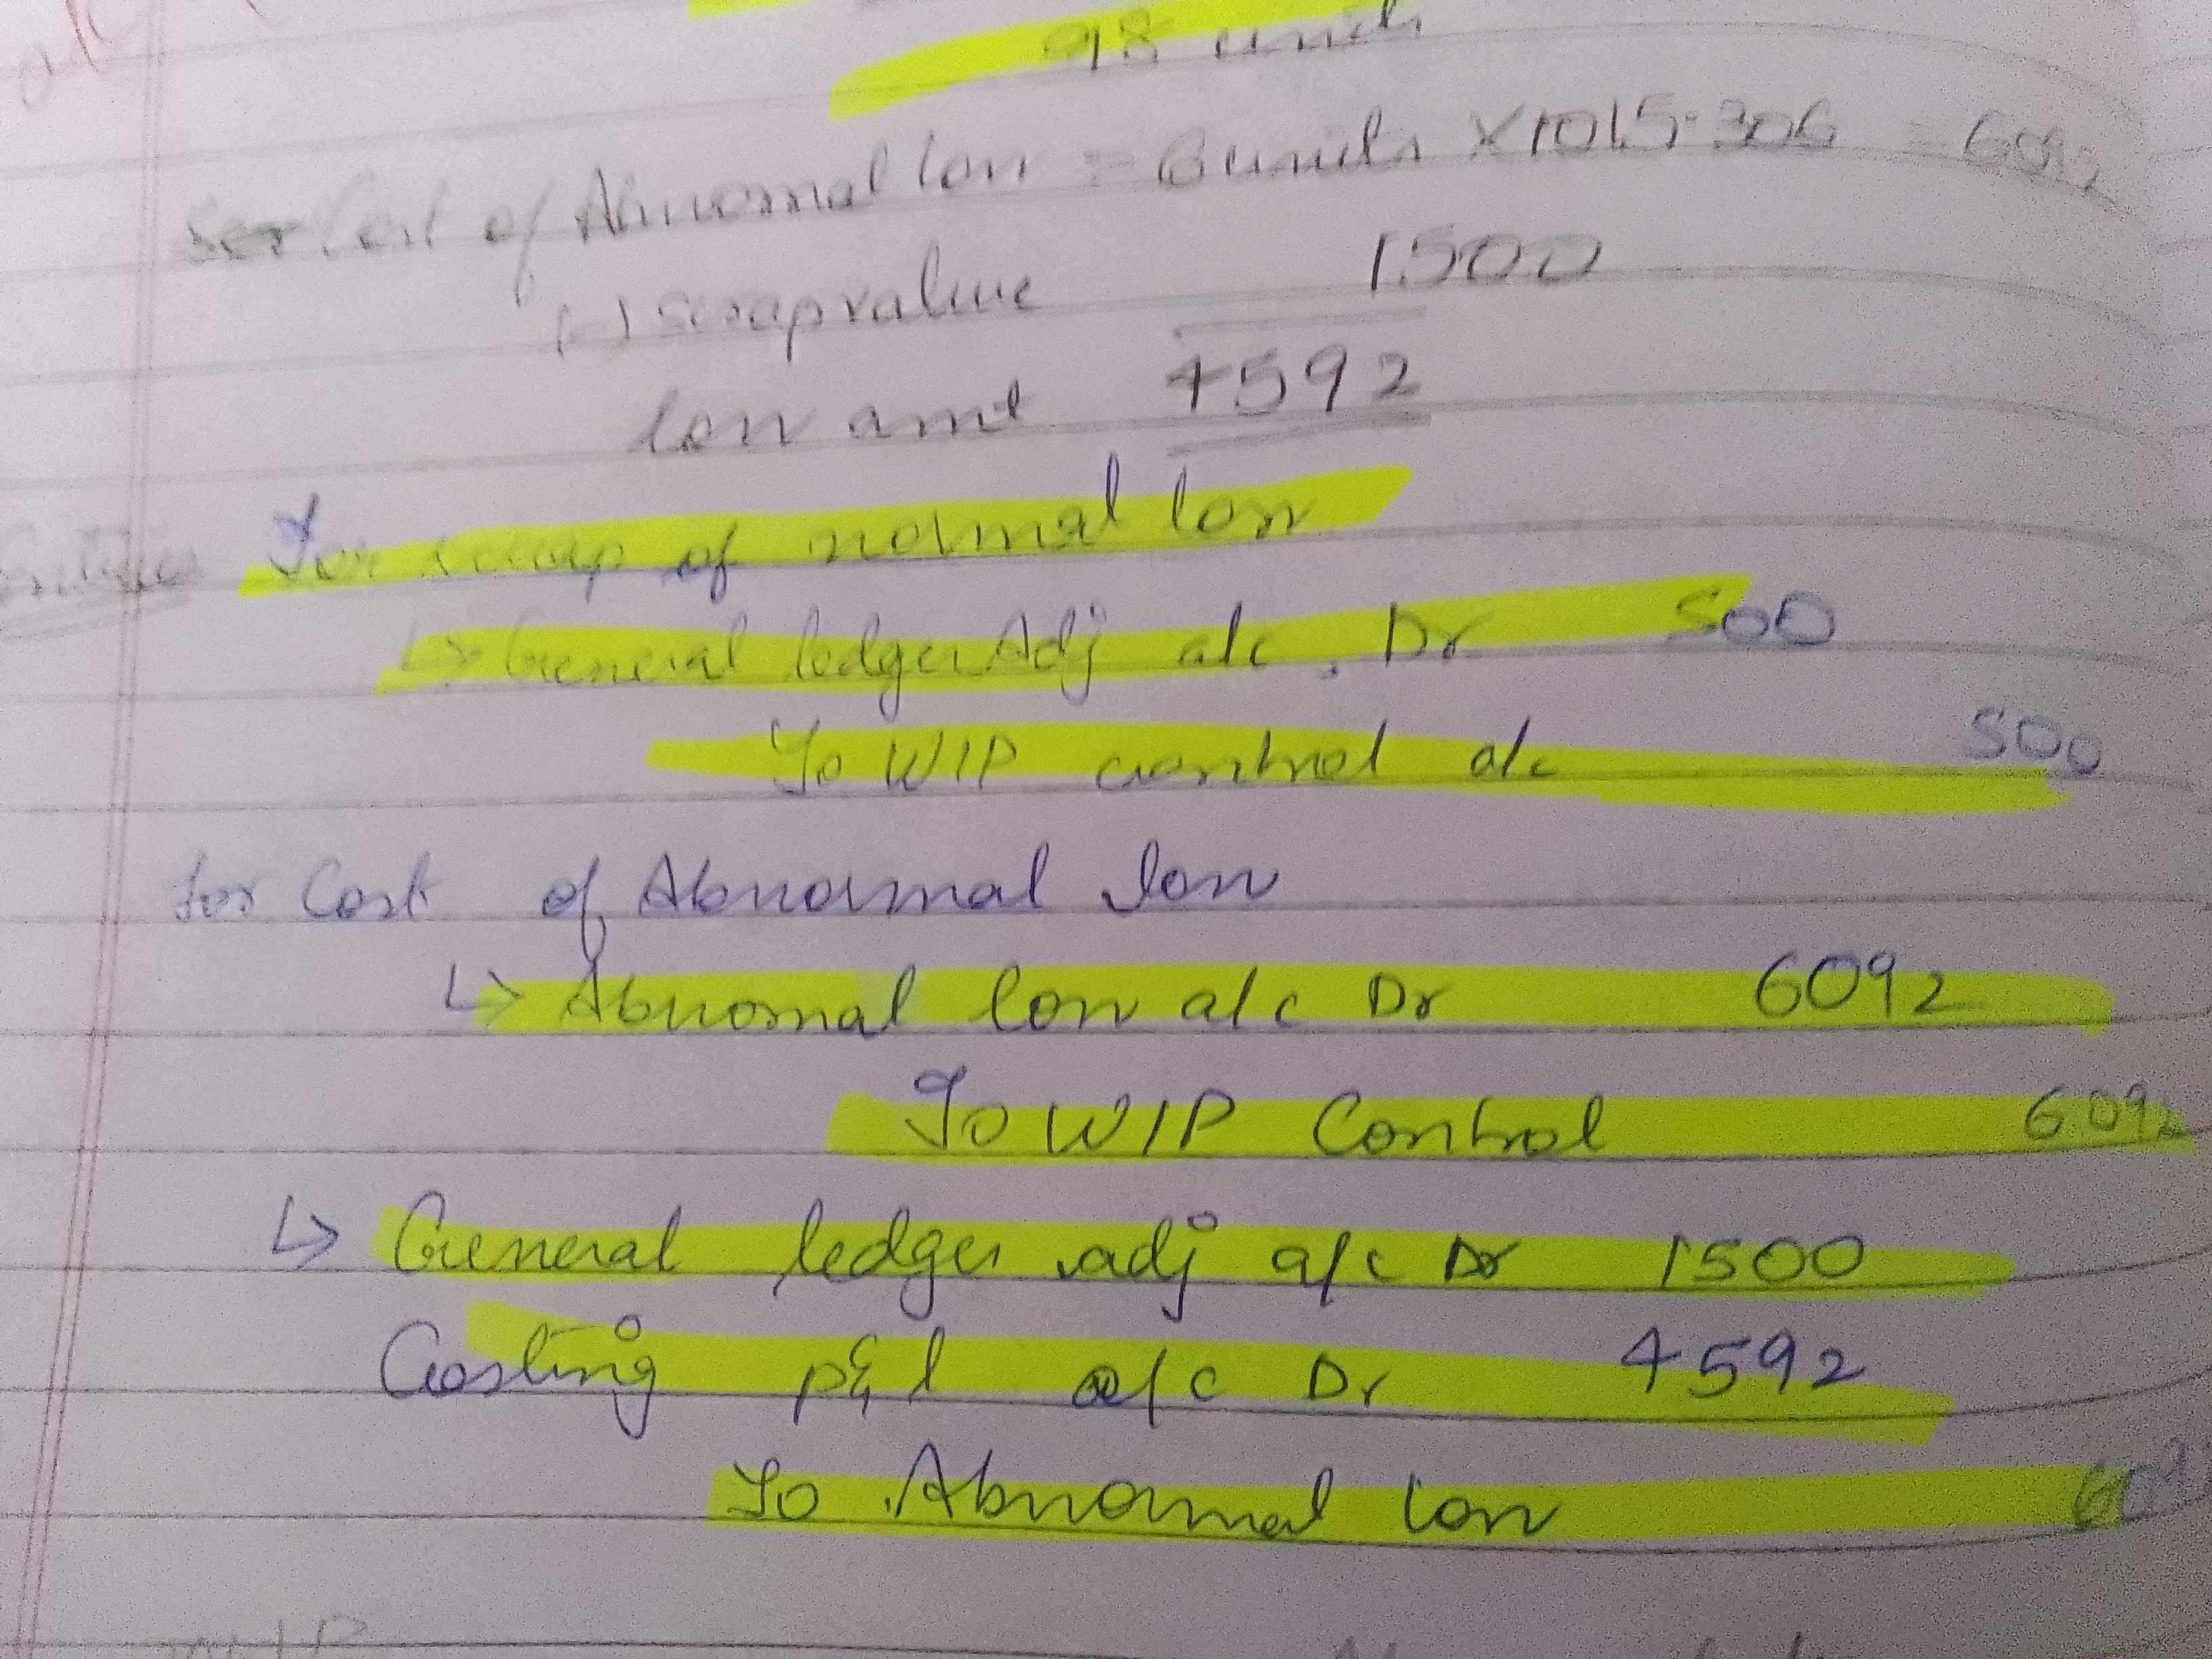 98 units
Cost of Abnormal loss = 6 units X 1015.306 = 6092
(-) scrap value 1500
loss amt 4592
For scrap of normal loss
↳ General ledger Adj a/c. Dr 500
To WIP control a/c 500
for Cost of Abnormal loss
↳ Abnormal loss a/c Dr 6092
To WIP Control 6092
↳ General ledger adj a/c Dr 1500
Costing p&l a/c Dr 4592
To Abnormal loss